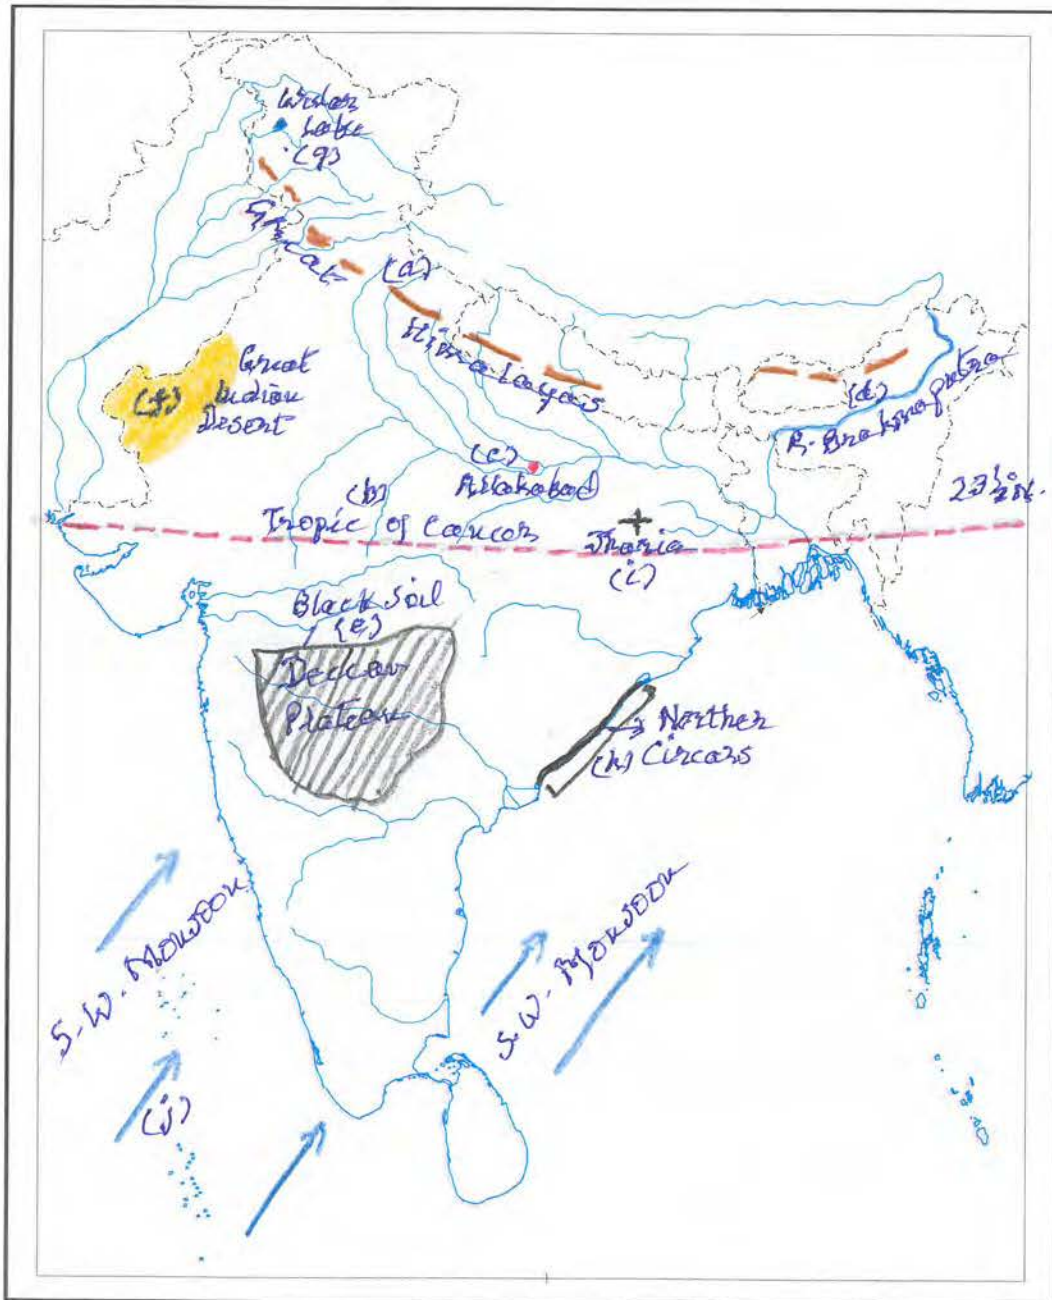 Wular
Lake
(g)
Great
(a)
Himalayas
Great
Indian
Desert
(f)
(d)
R. Brahmaputra
(c)
Allahabad
(b)
Tropic of Cancer
23½°N.
Jharia
(i)
Black Soil
(e)
Deccan
Plateau
Norther
(h) Circars
S.W. Monsoon
S.W. Monsoon
(j)